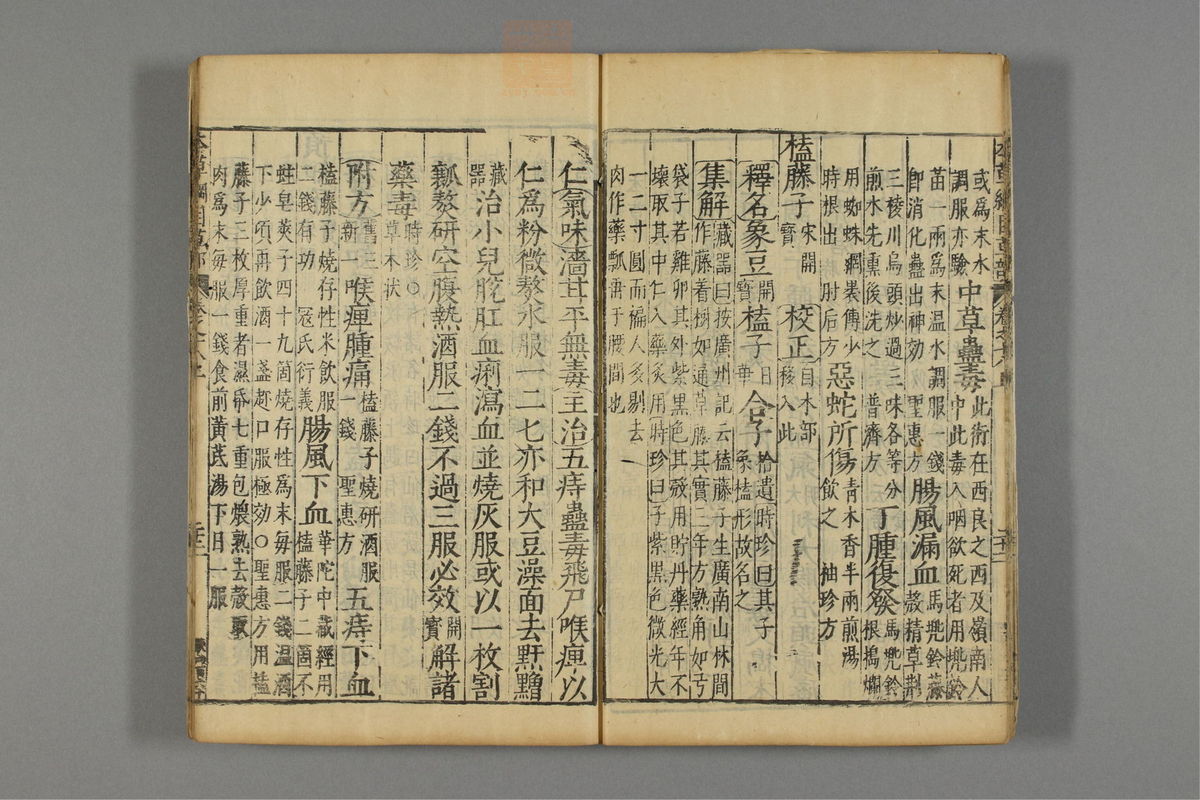 或爲末水調服亦驗中草蠱毒此術在西良之西及嶺南人中此毒入咽欲死者用兜鈴
苗一兩爲末温水調服一錢卽消化蠱出神効聖惠方腸風漏血馬兜鈴藤穀精草荆
三稜川烏頭炒過三味各等分煎水先熏後洗之普濟方丁腫復發馬兜鈴根搗爛
用蜘蛛網裹傅少時根出肘后方惡蛇所傷青木香半兩煎湯飲之袖珍方
榼藤子宋開寶校正自木部移入此
釋名象豆開寶榼子日華合子拾遺時珍曰其子象榼形故名之
集解藏器曰按廣州記云榼藤子生廣南山林間作藤着樹如通草藤其實三年方熟角如弓
袋子若雞卵其外紫黑色其殼用貯丹藥經年不壞取其中仁入藥炙用時珍曰子紫黑色微光大
一二寸圓而褊人多剔去肉作藥瓢垂于腰間也
仁氣味濇甘平無毒主治五痔蠱毒飛尸喉痺以
仁爲粉微熬水服一二匕亦和大豆澡面去䵟黵
藏器治小兒脫肛血痢瀉血並燒灰服或以一枚割
瓢熬研空腹熱酒服二錢不過三服必效開寶解諸
藥毒時珍○草木狀
附方舊三新一喉痺腫痛榼藤子燒研酒服一錢聖惠方五痔下血
榼藤子燒存性米飲服二錢有功寇氏衍義腸風下血華陀中藏經用榼藤子二箇不
蛀皂莢子四十九箇燒存性爲末每服二錢温酒下少頃再飲酒一盞趂口服極効○聖惠方用榼
藤子三枚厚重者濕帋七重包煨熟去殼取肉爲末每服一錢食前黃芪湯下日一服